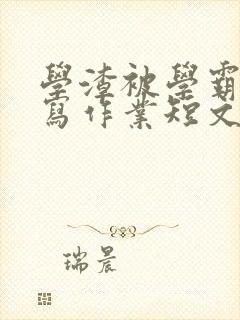 學渣被學霸
寫作業短文
瑞晨